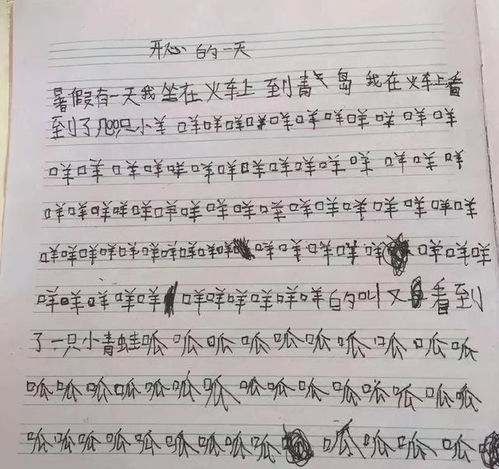 开心的一天
暑假有一天我坐在火车上到青岛我在火车上看
到了几只小羊咩咩咩咩咩咩咩咩咩咩咩咩
咩咩咩咩咩咩咩咩咩咩咩咩咩咩咩
咩咩咩咩咩咩咩咩咩咩咩咩咩咩咩咩
咩咩咩咩咩咩咩咩咩咩咩咩咩咩咩咩咩咩
咩咩咩咩咩咩咩咩咩咩咩的叫又看到
了一只小青蛙呱呱呱呱呱呱呱呱呱呱
呱呱呱呱呱呱呱呱呱呱呱呱呱呱
呱呱呱呱呱呱呱呱呱呱呱呱呱